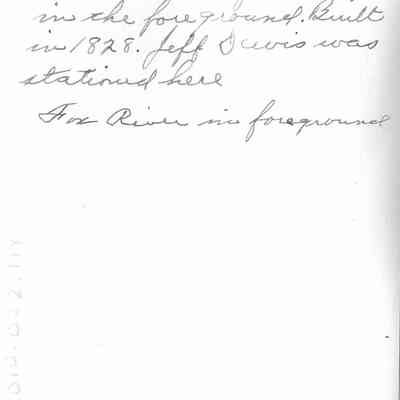 in the foreground. Built
in 1828. Jeff Davis was
stationed here
Fox River in foreground